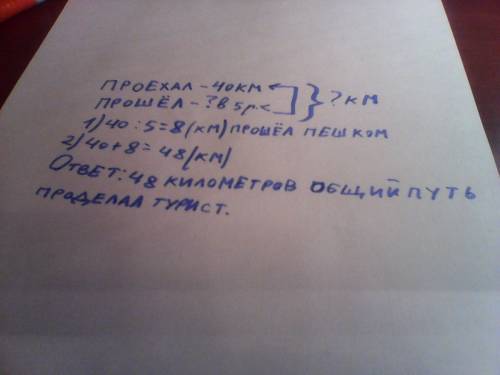 ПРОЕХАЛ - 40 КМ
ПРОШЁЛ - ? в 5 р.< } ? КМ
1) 40 : 5 = 8 (КМ) ПРОШЁЛ ПЕШКОМ
2) 40 + 8 = 48 (КМ)
ОТВЕТ: 48 КИЛОМЕТРОВ ОБЩИЙ ПУТЬ
ПРОДЕЛАЛ ТУРИСТ.